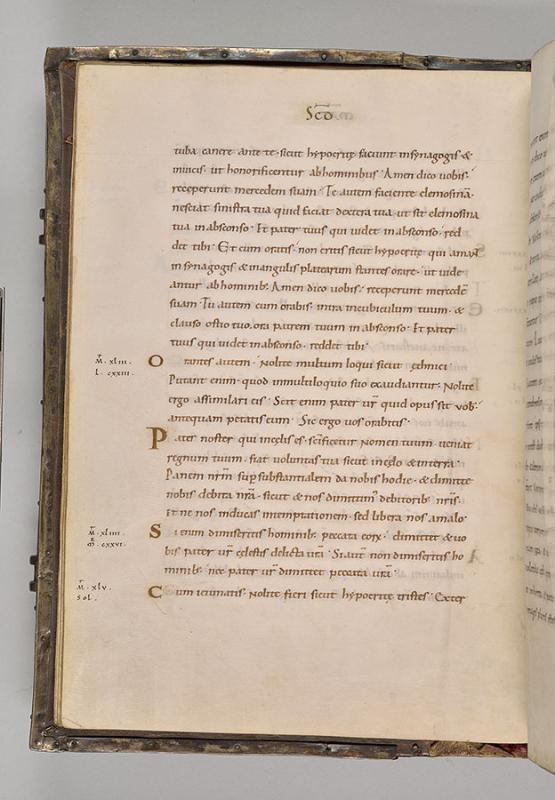 Scd̄
tuba canere ante te · sicut hypocritę faciunt in synagogis &
in uicis · ut honorificentur ab hominibus · Amen dico uobis ·
receperunt mercedem suam · Te autem faciente elemosinā ·
nesciat sinistra tua quid faciat dextera tua · ut sit elemosina
tua in absconso · Et pater tuus qui uidet in absconso · red
det tibi · Et cum oratis · non eritis sicut hypocritę qui amant
in synagogis & in angulis platearum stantes orare · ut uide
antur ab hominib; Amen dico uobis · receperunt mercedē
suam · Tu autem cum orabis · intra in cubiculum tuum · &
clauso ostio tuo, ora patrem tuum in absconso · Et pater
tuus qui uidet in absconso · reddet tibi ·
M̄ · xliii ·
L · cxxiii ·
Orantes autem · Nolite multum loqui sicut ęthnici ·
Putant enim · quod in multiloquio suo exaudiantur · Nolite
ergo assimilari eis · Scit enim pater ur̄ quid opus sit uob ·
antequam petatis eum · Sic ergo uos orabitis ·
Pater noster qui in cęlis es · sc̄ificetur Nomen tuum · ueniat
regnum tuum · fiat uoluntas tua sicut in cęlo & in terra ·
Panem nr̄m sup̄substantialem da nobis hodie · & dimitte
nobis debita nr̄a · sicut & nos dimittim; debitorib; nr̄is ·
Et ne nos inducas in temptationem · sed libera nos a malo ·
M̄ · xliiii ·
m̄ · cxxvi ·
Si enim dimiseritis hominib; peccata eorꝝ · dimittet & uo
bis pater ur̄ cęlestis delicta ur̄a · Si autē non dimiseritis ho
minib; · nec pater ur̄ dimittet peccata ur̄a ·
M̄ · xlv ·
Sol ·
Cum ieiunatis · Nolite fieri sicut hypocritę tristes · Exter